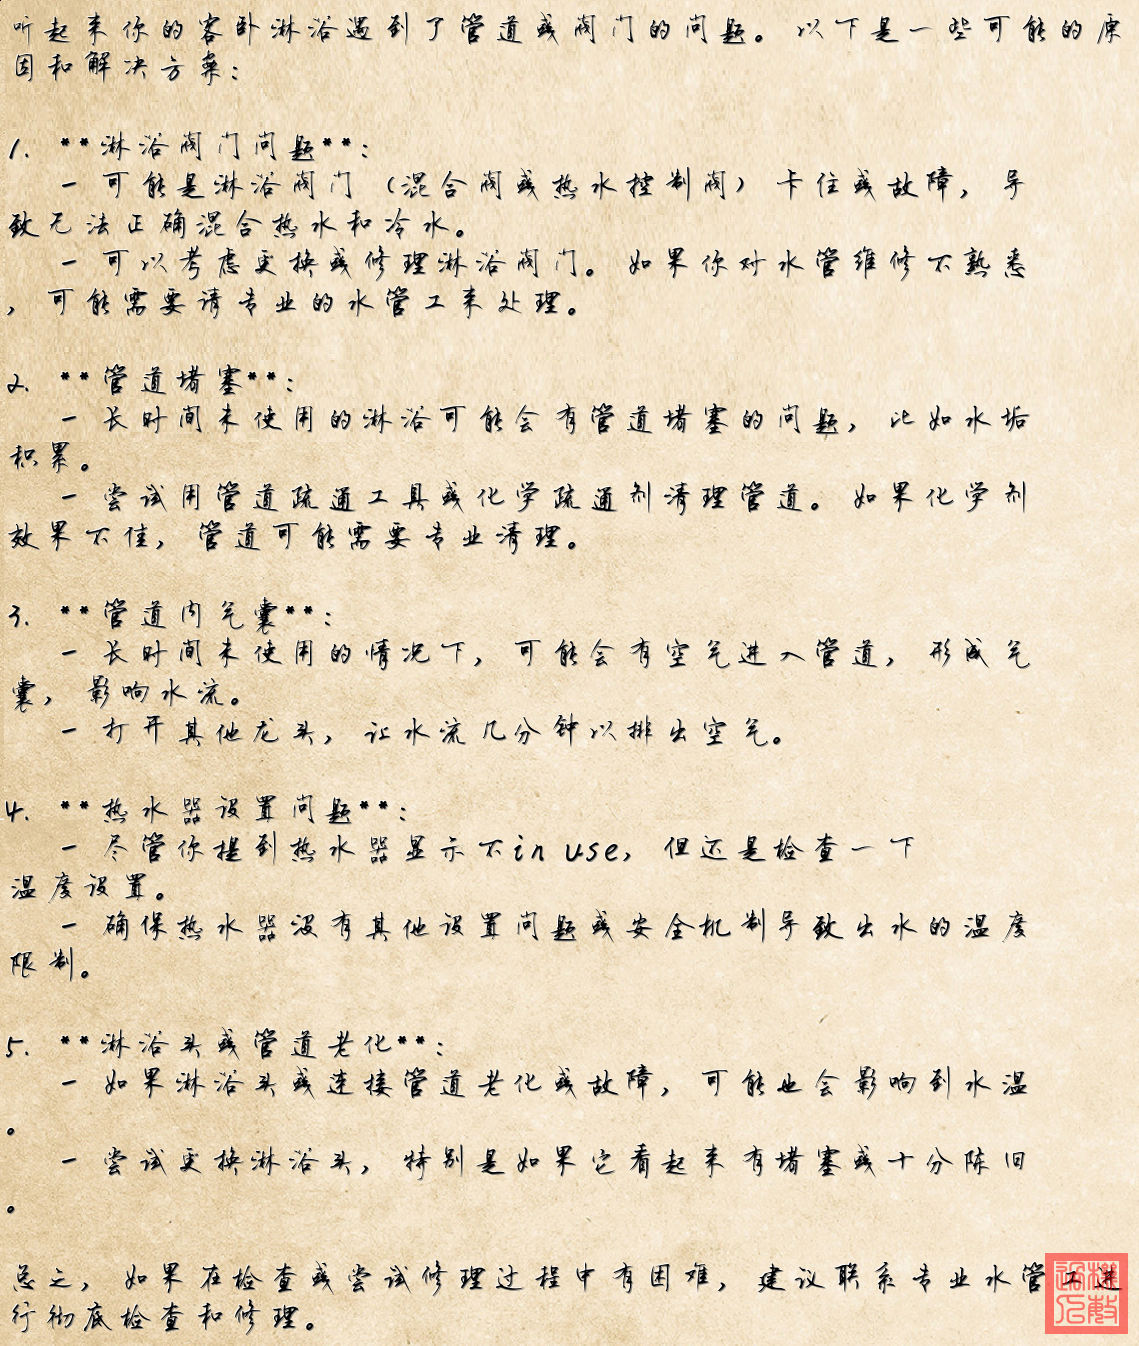 听起来你的客卧淋浴遇到了管道或阀门的问题。以下是一些可能的原
因和解决方案：
1. **淋浴阀门问题**：
- 可能是淋浴阀门（混合阀或热水控制阀）卡住或故障，导
致无法正确混合热水和冷水。
- 可以考虑更换或修理淋浴阀门。如果你对水管维修不熟悉
，可能需要请专业的水管工来处理。
2. **管道堵塞**：
- 长时间未使用的淋浴可能会有管道堵塞的问题，比如水垢
积累。
- 尝试用管道疏通工具或化学疏通剂清理管道。如果化学剂
效果不佳，管道可能需要专业清理。
3. **管道内气囊**：
- 长时间未使用的情况下，可能会有空气进入管道，形成气
囊，影响水流。
- 打开其他龙头，让水流几分钟以排出空气。
4. **热水器设置问题**：
- 尽管你提到热水器显示不in use，但还是检查一下
温度设置。
- 确保热水器没有其他设置问题或安全机制导致出水的温度
限制。
5. **淋浴头或管道老化**：
- 如果淋浴头或连接管道老化或故障，可能也会影响到水温
。
- 尝试更换淋浴头，特别是如果它看起来有堵塞或十分陈旧
。
总之，如果在检查或尝试修理过程中有困难，建议联系专业水管工进
行彻底检查和修理。